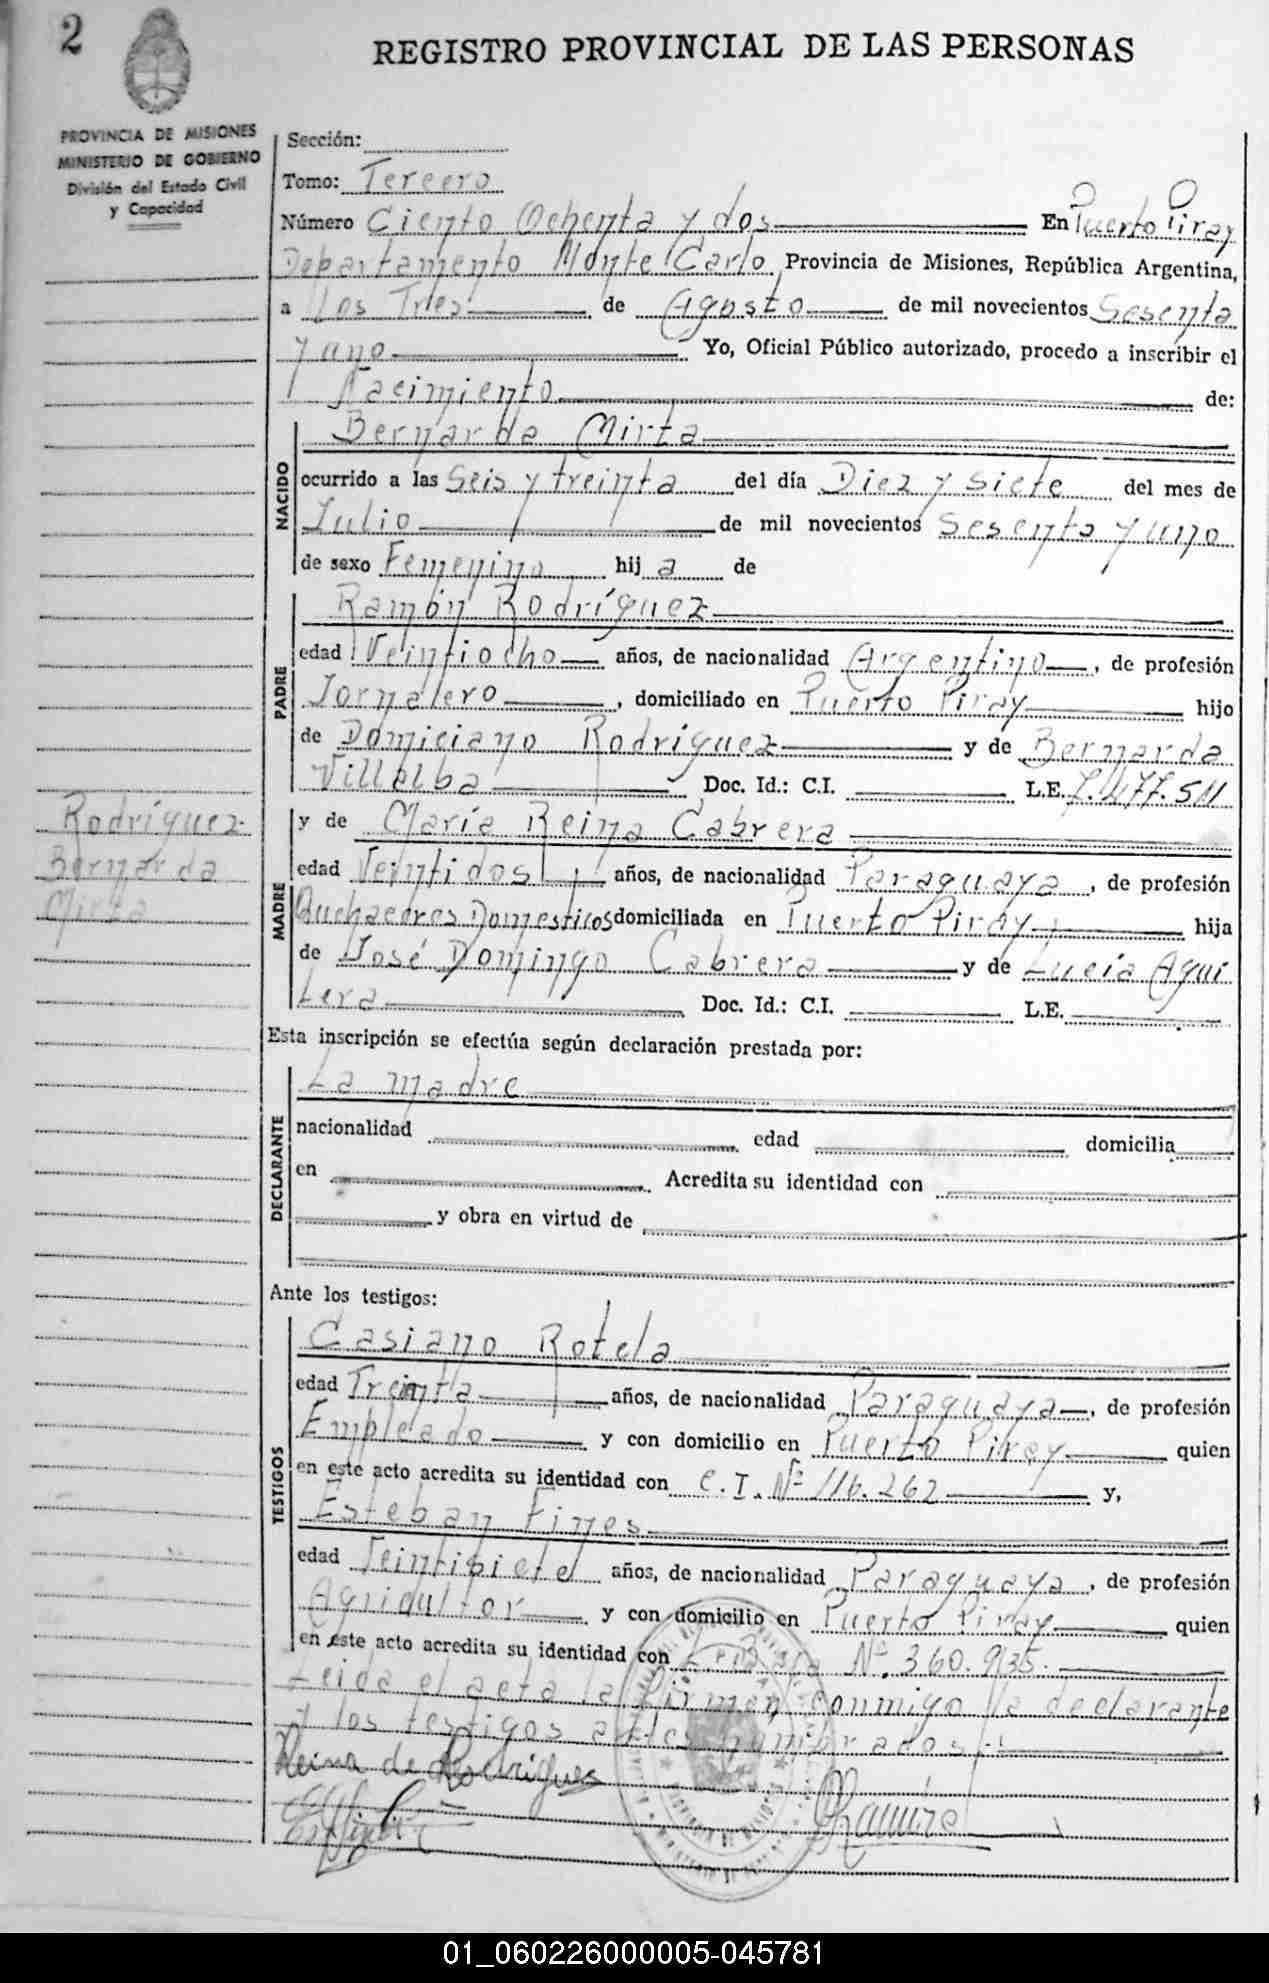 2
REGISTRO PROVINCIAL DE LAS PERSONAS
PROVINCIA DE MISIONES
MINISTERIO DE GOBIERNO
División del Estado Civil
y Capacidad
Sección:
Tomo: Tercero
Número Ciento Ochenta y dos En Puerto Piray
Departamento Monte Carlo Provincia de Misiones, República Argentina,
a Los Tres de Agosto de mil novecientos Sesenta
y uno Yo, Oficial Público autorizado, procedo a inscribir el
Nacimiento de:
NACIDO
Bernarda Mirta
ocurrido a las Seis y treinta del día Diez y siete del mes de
Julio de mil novecientos Sesenta y uno
de sexo Femenino hij a de
PADRE
Ramón Rodríguez
edad Veintiocho años, de nacionalidad Argentino, de profesión
Jornalero, domiciliado en Puerto Piray hijo
de Domiciano Rodríguez y de Bernarda
Villalba Doc. Id.: C.I. L.E. 7.477.511
Rodríguez
Bernarda
Mirta
MADRE
y de María Reina Cabrera
edad Veintidos años, de nacionalidad Paraguaya, de profesión
Quehaceres Domesticos domiciliada en Puerto Piray hija
de José Domingo Cabrera y de Lucía Agui
Lera Doc. Id.: C.I. L.E.
Esta inscripción se efectúa según declaración prestada por:
DECLARANTE
La madre
nacionalidad edad domicilia
en Acredita su identidad con
y obra en virtud de
Ante los testigos:
TESTIGOS
Casiano Rotela
edad Treinta años, de nacionalidad Paraguaya, de profesión
Empleado y con domicilio en Puerto Piray quien
en este acto acredita su identidad con C.I. Nº 116.262 y,
Esteban
edad años, de nacionalidad Paraguaya, de profesión
Agricultor y con domicilio en Puerto Piray quien
en este acto acredita su identidad con Nº 360.935.
Leida el acta la firman conmigo la declarante
y los testigos antes nombrados
Reina de Rodrigues
Ramirez
01_060226000005-045781